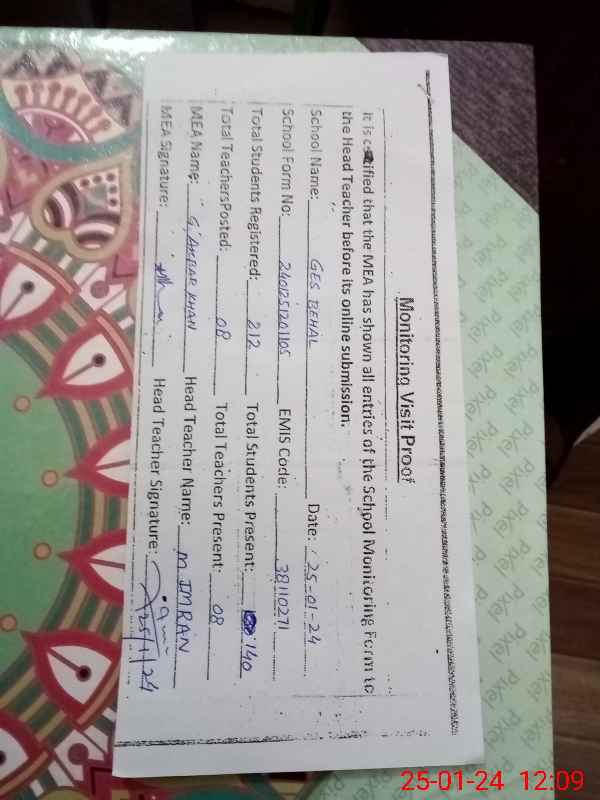 Monitoring Visit Proof
It is certified that the MEA has shown all entries of the School Monitoring Form to
the Head Teacher before its online submission.
School Name: GES BEHAL Date: 25-01-24
School Form No: 2401251201105 EMIS Code: 38110271
Total Students Registered: 212 Total Students Present: 140
Total TeachersPosted: 08 Total Teachers Present: 08
MEA Name: KHAN Head Teacher Name: M IMRAN
MEA Signature: Head Teacher Signature:
25/1/24
Pixel Pixel Pixel Pixel
25-01-24 12:09